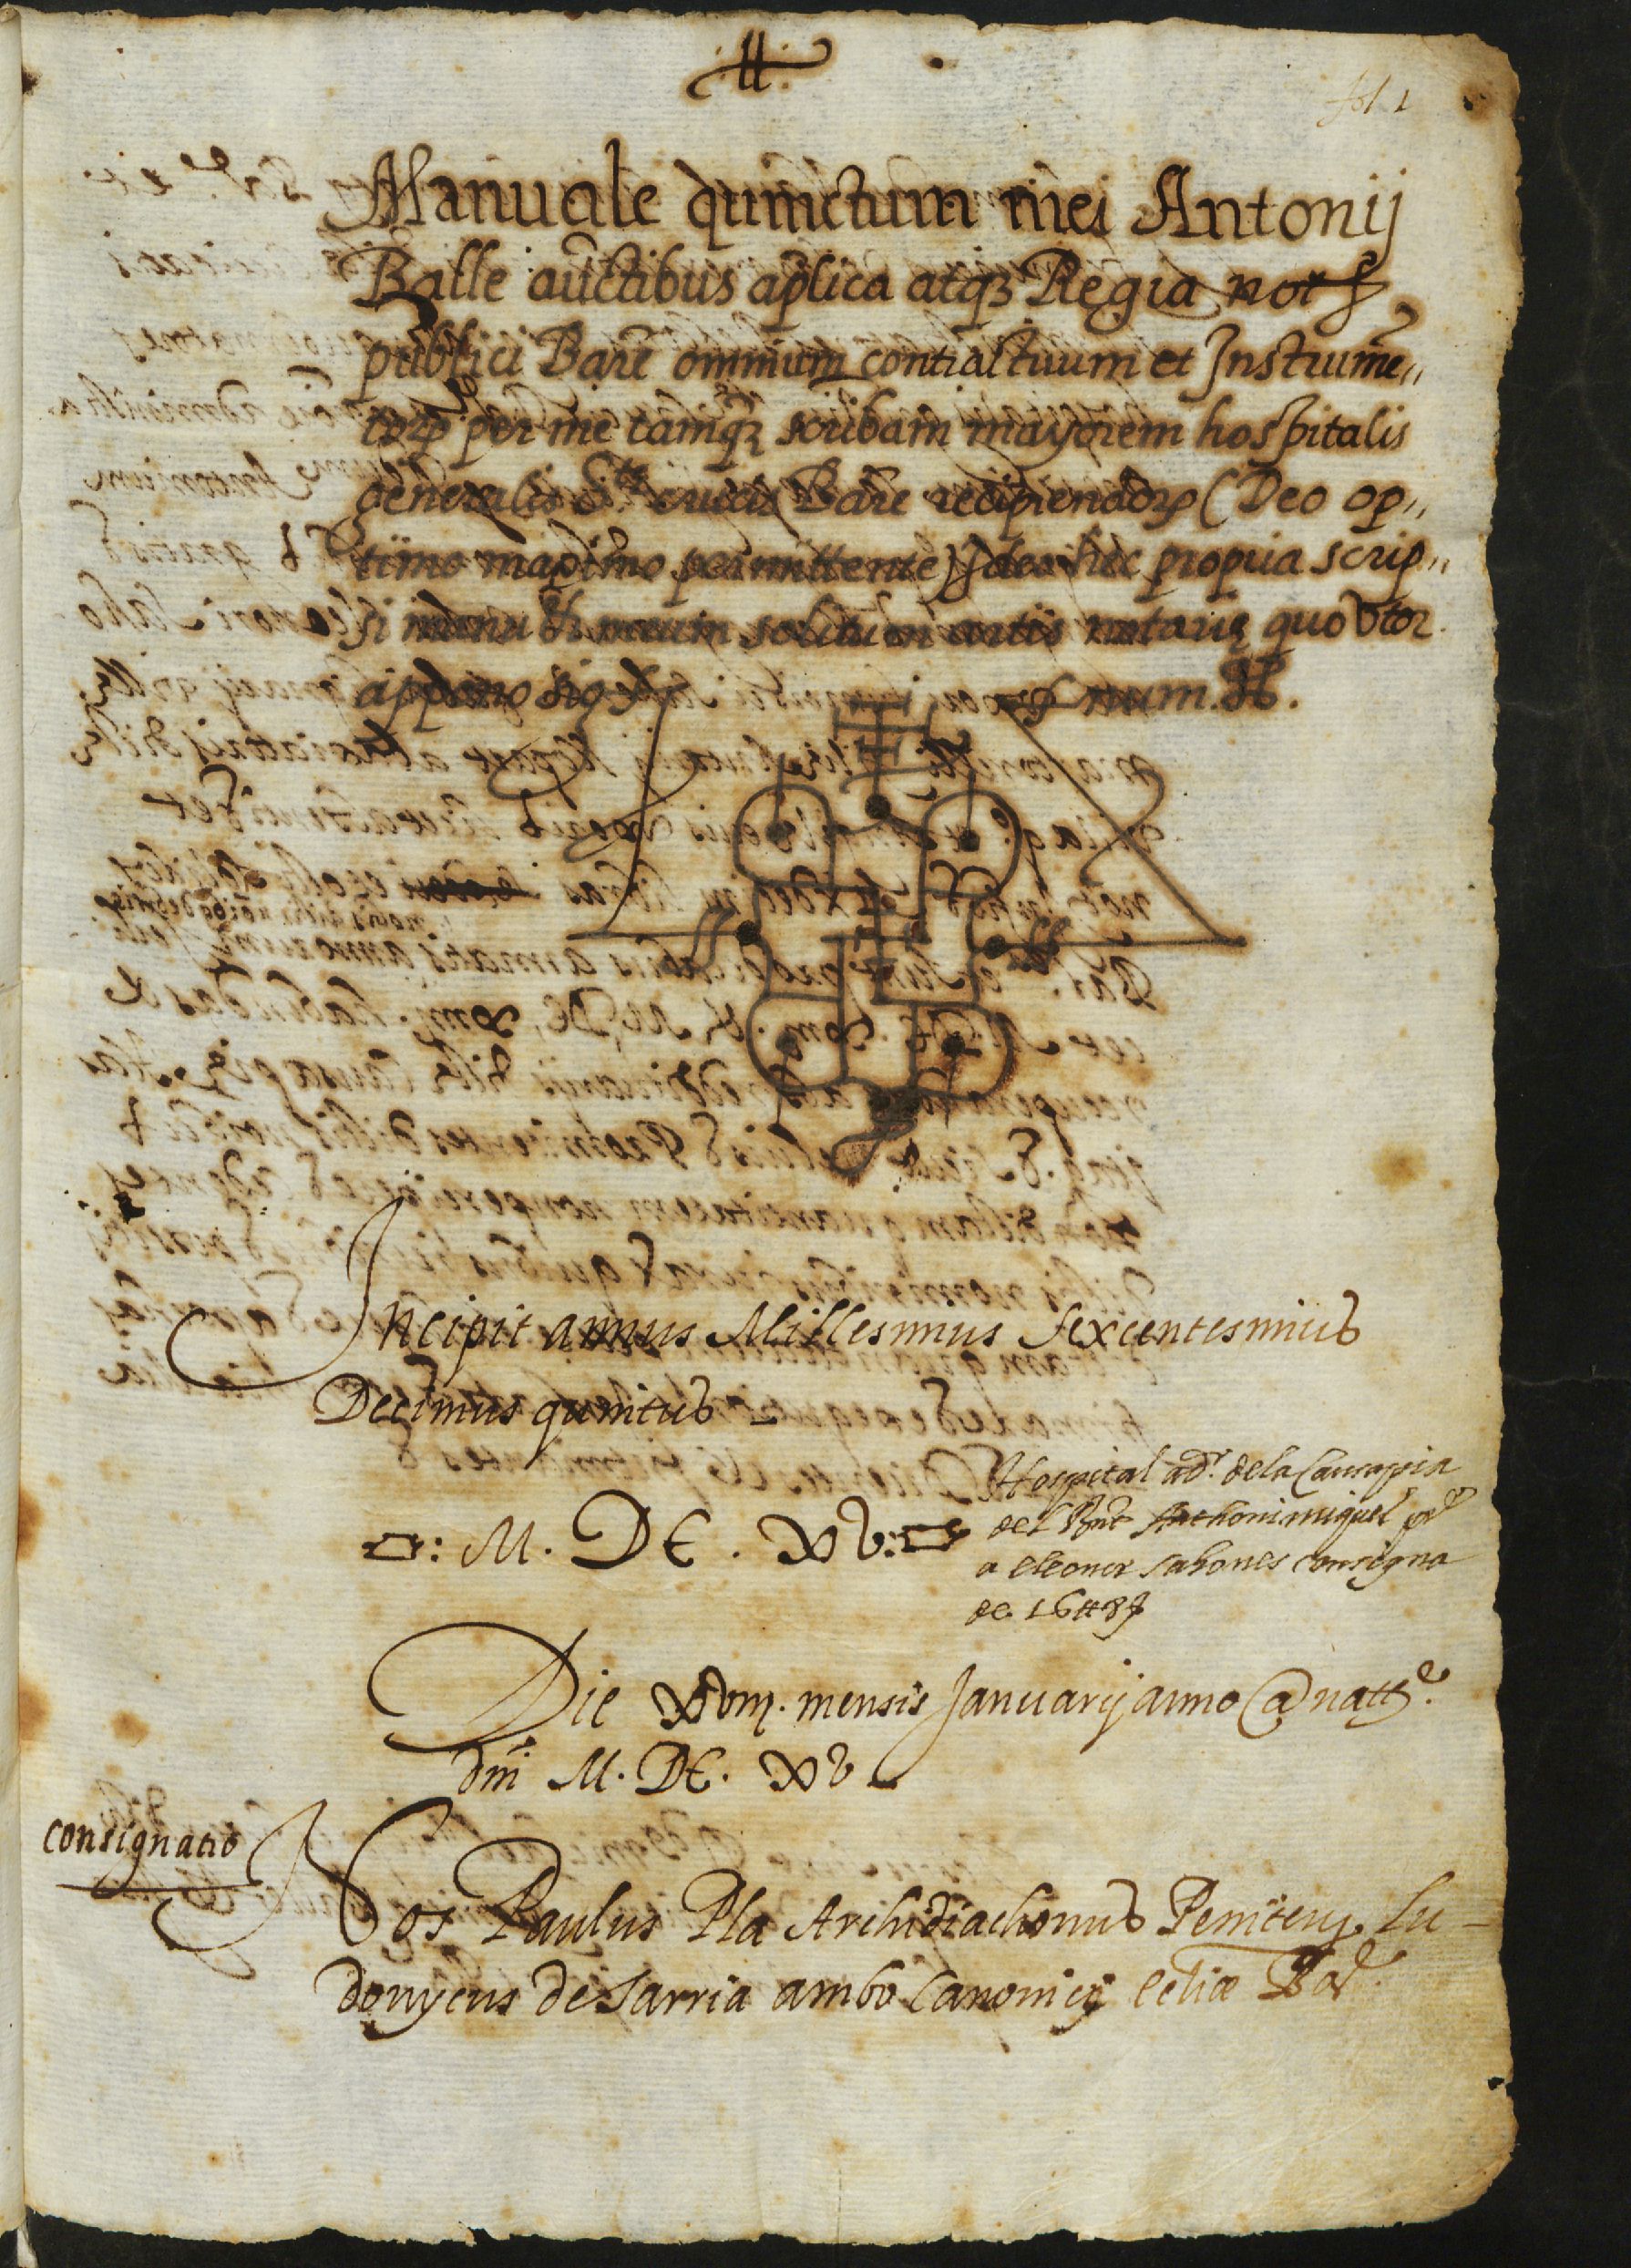 .H.
fol 1
Manuale quinctum mei Antonij
Batlle auctibus aplica atq3 Regia not
publici Barē omnium contractuum et Instrumē„
torȝ per me tamqȝ scribam mayorem hospitalis
generalis Stē crucis Barē recipiendorȝ (Deo op„
timo maximo permittente) Ideo hic propria scrip„
si manu et meum solitum artis notarię quo vtor
appono sig num. H.
Incipit annus Millesimus sexcentesimus
Decimus quintus
: M. DC. XV :
Hospital adr. de la Causa pia
del Rnt Anthoni miquel pre
a eleonor sabones consigna
de 16 tt 8 s
Die XVIII. mensis Januarij anno @ natte.
dni M. DC. XV
consignatio
Nos Paulus Pla Archidiachonus Peniteny. Lu-
dovycus de Sarria ambo Canonicj ecliæ Bar.